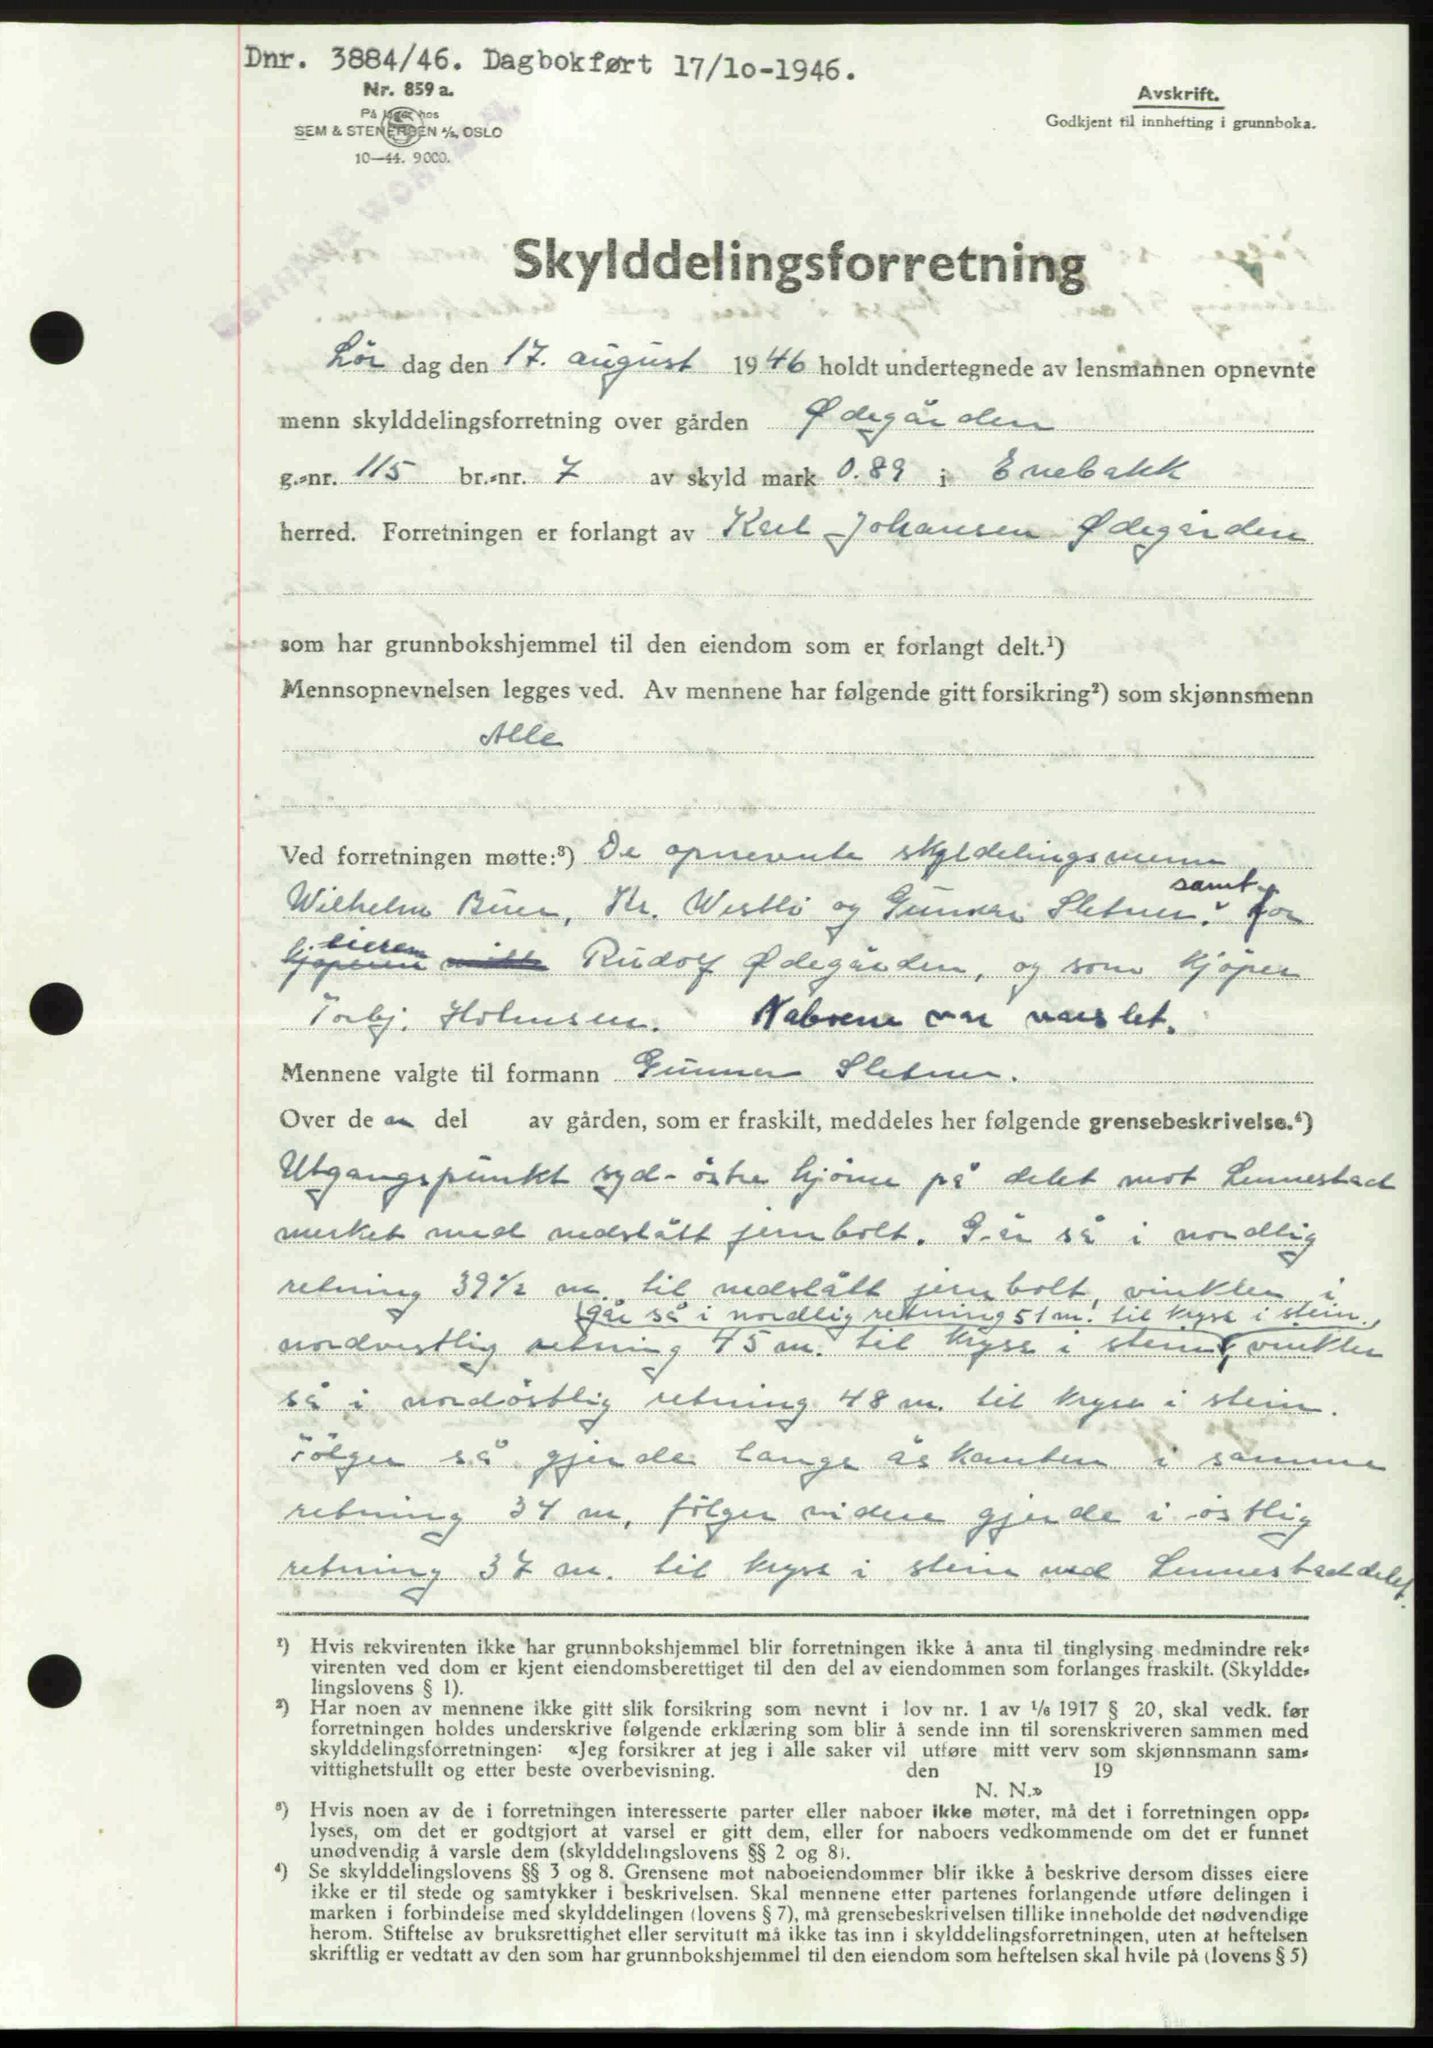 Dnr. 3884/46. Dagbokført 17/10-1946.
Nr. 859 a.
På lager hos
SEM & STENERSEN A/S, OSLO
10—44. 9000.
Avskrift.
Godkjent til innhefting i grunnboka.
Skylddelingsforretning
Lör dag den 17. august 1946 holdt undertegnede av lensmannen opnevnte
menn skylddelingsforretning over gården Ødegården
g.-nr. 115 br.-nr. 7 av skyld mark 0.89 i Enebakk
herred. Forretningen er forlangt av Karl Johansen Ødegården
som har grunnbokshjemmel til den eiendom som er forlangt delt.¹)
Mennsopnevnelsen legges ved. Av mennene har følgende gitt forsikring²) som skjønnsmenn
Alle
Ved forretningen møtte:³) De opnevnte skyldelingsmenn
Wilhelm Buer, Kr. Westli og Gunnar Sletner. samt for
kjøperen eieren Rudolf Ødegården, og som kjöper
Torbj. Holmsen. Naboene var varslet.
Mennene valgte til formann Gunnar Sletner.
Over de n del av gården, som er fraskilt, meddeles her følgende grensebeskrivelse.⁴)
Utgangspunkt syd-östre hjörne på delet mot Lennestad
merket med nedslått jernbolt. Går så i nordlig
retning 39½ m. til nedslått jernbolt, vinkler i
går så i nordlig retning 51 m. til kryss i stein,
nordvestlig retning 45 m. til kryss i stein, vinkler
så i nordöstlig retning 48 m. til kryss i stein.
Fölger så gjerde langs åskanten i samme
retning 34 m, fölger videre gjerde i östlig
retning 37 m. til kryss i stein ved Lennestaddelet.
¹) Hvis rekvirenten ikke har grunnbokshjemmel blir forretningen ikke å anta til tinglysing medmindre rek-
virenten ved dom er kjent eiendomsberettiget til den del av eiendommen som forlanges fraskilt. (Skyldde-
lingslovens § 1).
²) Har noen av mennene ikke gitt slik forsikring som nevnt i lov nr. 1 av 1/6 1917 § 20, skal vedk. før
forretningen holdes underskrive følgende erklæring som blir å sende inn til sorenskriveren sammen med
skylddelingsforretningen: «Jeg forsikrer at jeg i alle saker vil utføre mitt verv som skjønnsmann sam-
vittighetsfullt og etter beste overbevisning. den 19
N. N.»
³) Hvis noen av de i forretningen interesserte parter eller naboer ikke møter, må det i forretningen opp-
lyses, om det er godtgjort at varsel er gitt dem, eller for naboers vedkommende om det er funnet
unødvendig å varsle dem (skylddelingslovens §§ 2 og 8).
⁴) Se skylddelingslovens §§ 3 og 8. Grensene mot naboeiendommer blir ikke å beskrive dersom disses eiere
ikke er til stede og samtykker i beskrivelsen. Skal mennene etter partenes forlangende utføre delingen i
marken i forbindelse med skylddelingen (lovens § 7), må grensebeskrivelsen tillike inneholde det nødvendige
herom. Stiftelse av bruksrettighet eller servitutt må ikke tas inn i skylddelingsforretningen, uten at heftelsen
skriftlig er vedtatt av den som har grunnbokshjemmel til den eiendom som heftelsen skal hvile på (lovens § 5)